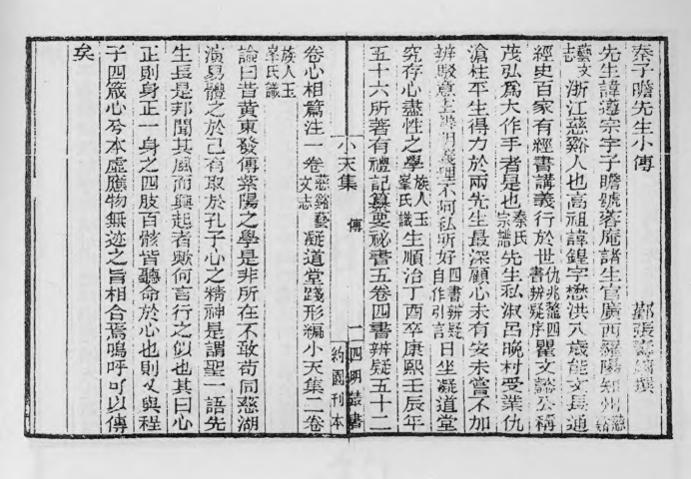 秦子瞻先生小傳 鄞張壽鏞撰
先生諱遵宗字子瞻號蓉庵諸生官廣西羅陽知州慈谿
藝文志浙江慈谿人也高祖諱鍠字懋洪八歲能文長通
經史百家有經書講義行於世仇兆鰲四書辨疑序瞿文懿公稱
茂弘爲大作手者是也秦氏宗譜先生私淑呂晚村受業仇
滄柱平生得力於兩先生最深顧心未有安未嘗不加
辨駁意主明義理不阿私所好四書辨疑自作引言日坐凝道堂
究存心盡性之學族人玉峯氏識生順治丁酉卒康熙壬辰年
五十六所著有禮記纂要祕書五卷四書辨疑五十二
小天集 傳 二 四明叢書 約園刊本
卷心相篇注一卷慈谿藝文志凝道堂踐形編小天集二卷
族人玉峯氏識
論曰昔黃東發傳紫陽之學是非所在不敢苟同慈湖
演易體之於己有取於孔子心之精神是謂聖一語先
生長是邦聞其風而興起者歟何言行之似也其曰心
正則身正一身之四肢百骸皆聽命於心也則又與程
子四箴心兮本虛應物無迹之旨相合焉嗚呼可以傳
矣